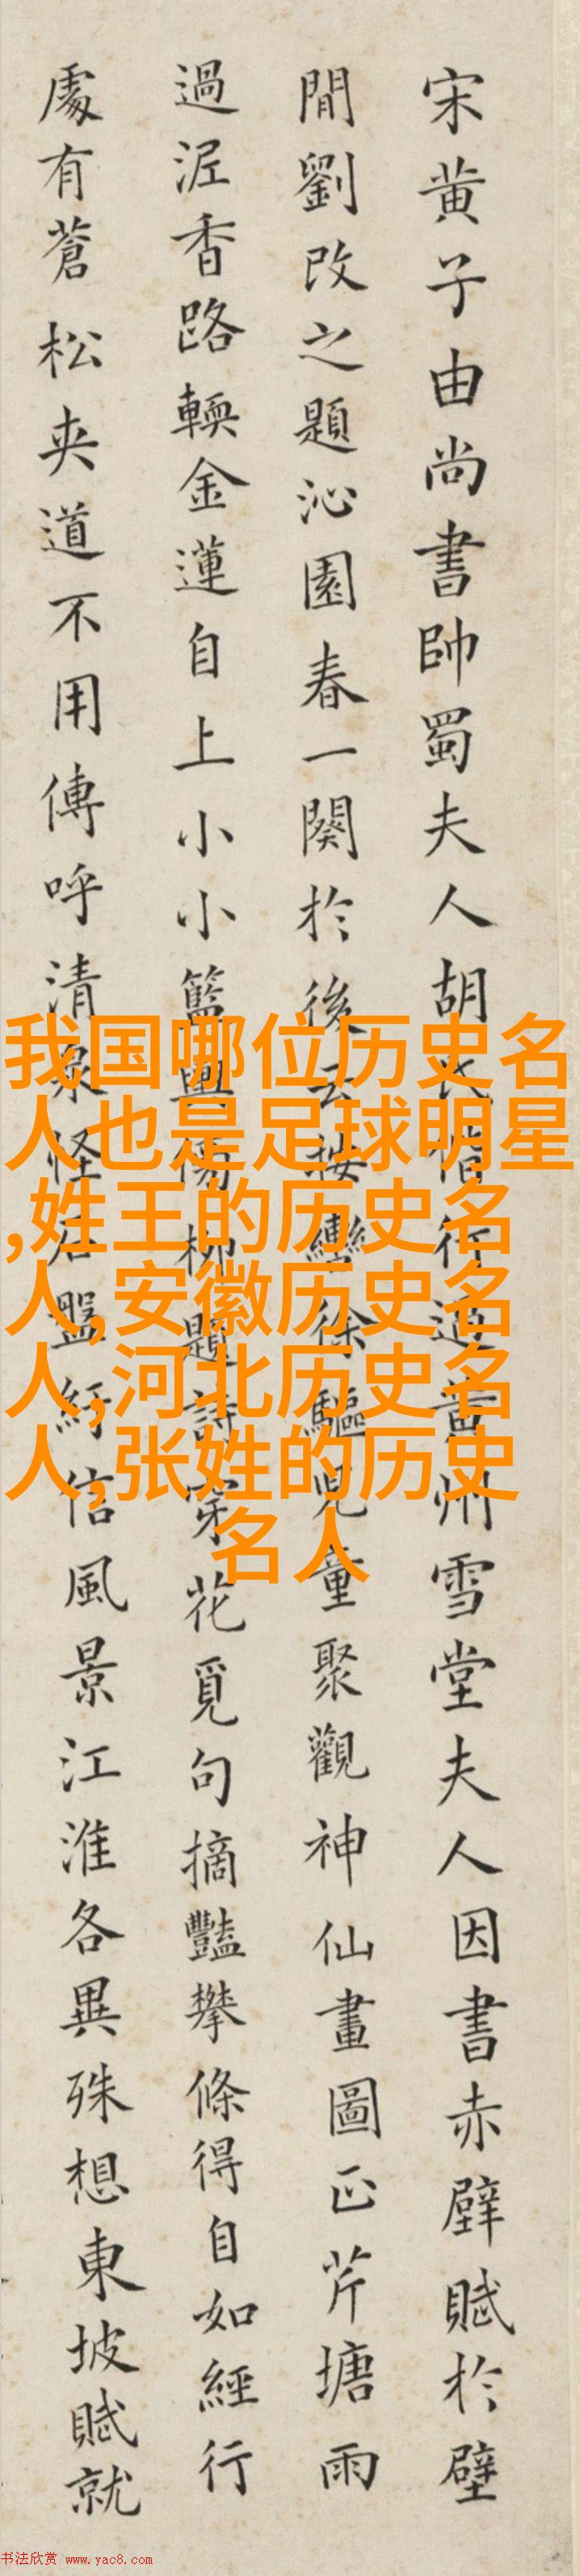 宋黄子由尚書帥蜀夫人胡氏偕行黄州雪堂夫人因書赤壁賦於壁
間劉改之題沁園春一闋於後云按轡徐驅兒童聚觀神仙畫圖正芹塘雨
過泥香路輭金蓮自上小小籃輿傍柳題詩穿花覓句摘豔攀條得自如經行
處有蒼松夾道不用傳呼清泉怪石盤紆信風景江淮各異殊想東坡賦就
我国哪位历史名
人也是足球明星
,姓王的历史名
人,安徽历史名
人,河北历史名
人,张姓的历史
名人
书法欣赏 www.yac8.com